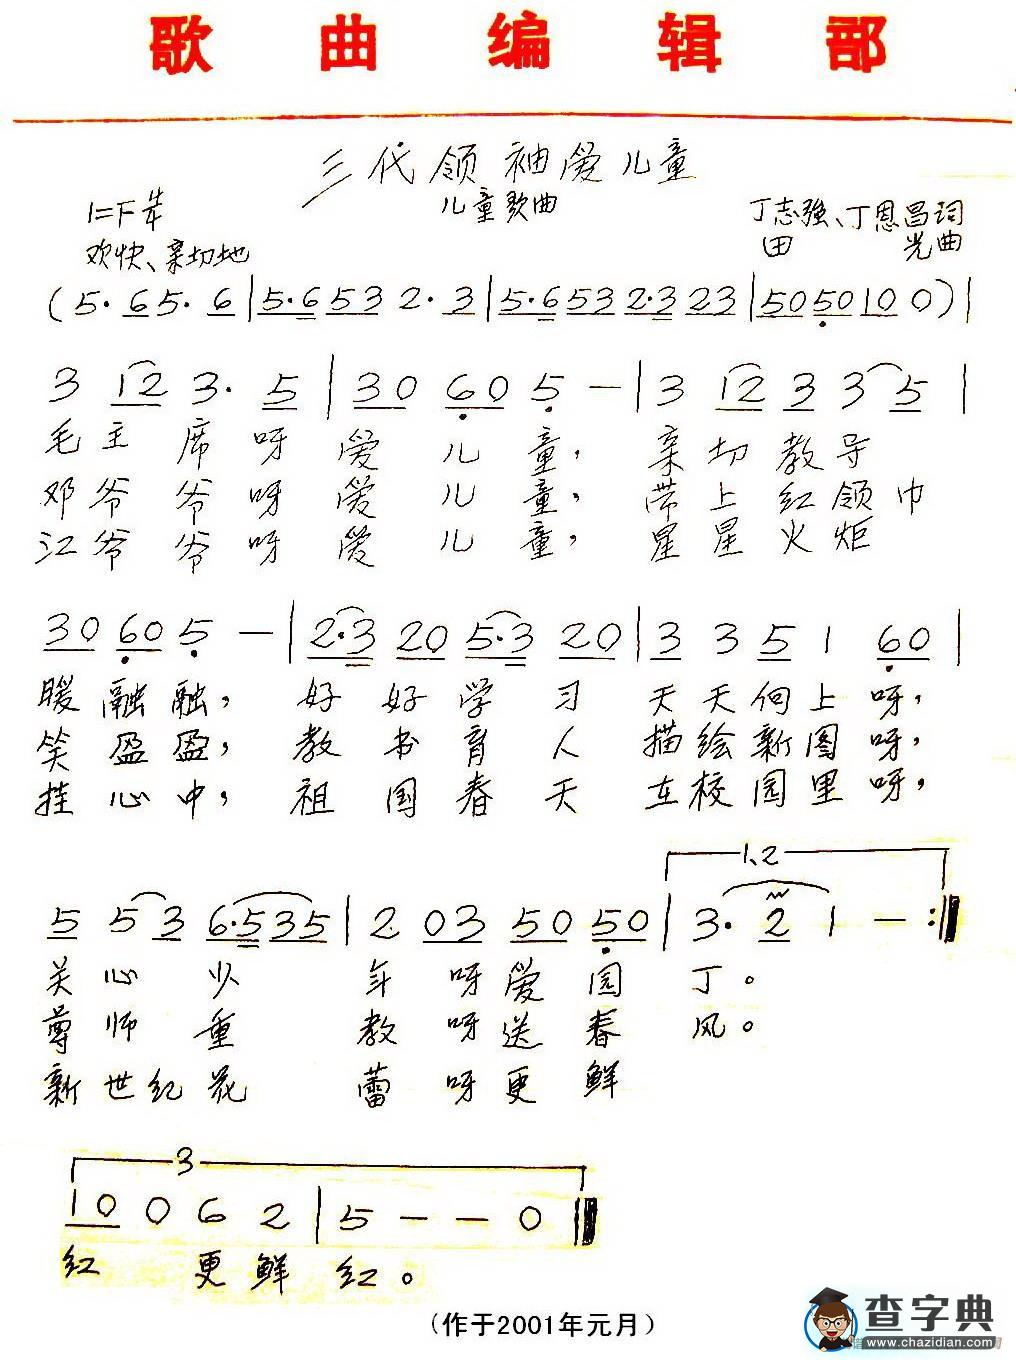 歌曲编辑部
三代领袖爱儿童
儿童歌曲
1=F 4/4
丁志强、丁恩昌词
田光曲
欢快、亲切地
(5·65·6|5·6532·3|5·6532·323|5050100)|
3 12 3· 5|30 60 5 —|3 12 3 3 5|
毛主席呀爱儿童，亲切教导
邓爷爷呀爱儿童，带上红领巾
江爷爷呀爱儿童，星星火炬
30 60 5 —|2·3 20 5·3 20|3 3 5 1 60|
暖融融，好好学习天天向上呀，
笑盈盈，教书育人描绘新图呀，
挂心中，祖国春天在校园里呀，
1、2
5 5 3 6·535|2 03 50 50|3· 2 1 — :‖
关心少年呀爱园丁。
尊师重教呀送春风。
新世纪花蕾呀更鲜
3
10 0 6 2|5 — — 0‖
红更鲜红。
（作于2001年元月）
查字典
www.chazidian.com